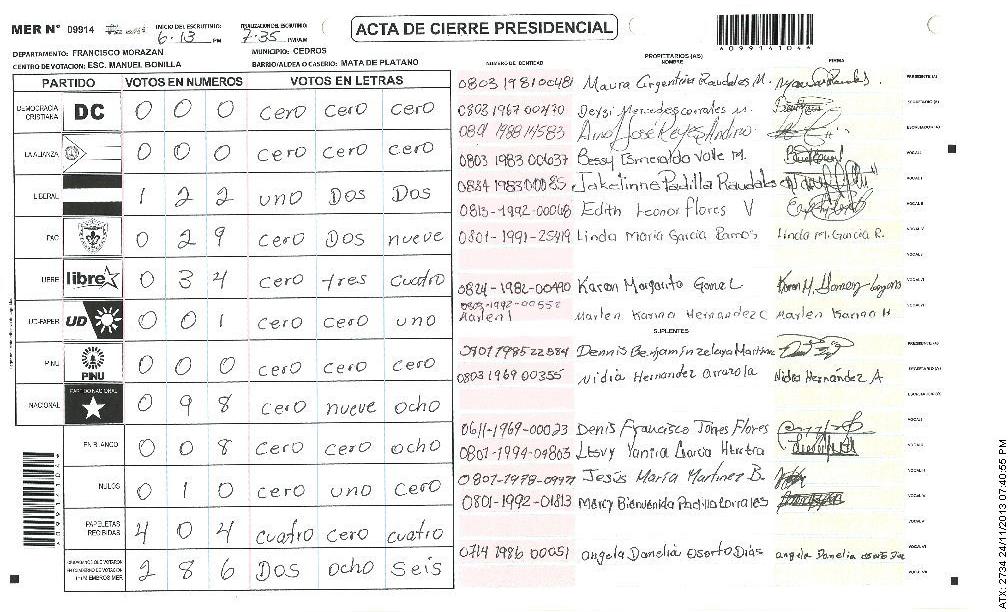 MER Nº 09914 INICIO DEL ESCRUTINIO: 6-13 PM FINALIZACION DEL ESCRUTINIO: 7-35 PM/AM
ACTA DE CIERRE PRESIDENCIAL
4099141044
DEPARTAMENTO: FRANCISCO MORAZAN MUNICIPIO: CEDROS
CENTRO DE VOTACION: ESC. MANUEL BONILLA BARRIO/ALDEA O CASERIO: MATA DE PLATANO
PARTIDO VOTOS EN NUMEROS VOTOS EN LETRAS
DEMOCRACIA CRISTIANA DC 0 0 0 cero cero cero
LA ALIANZA 0 0 0 cero cero cero
LIBERAL 1 2 2 uno Dos Dos
PAC 0 2 9 cero Dos nueve
LIBRE libre 0 3 4 cero tres cuatro
UD-FAPER UD 0 0 1 cero cero uno
PINU PINU 0 0 0 cero cero cero
NACIONAL PARTIDO NACIONAL 0 9 8 cero nueve ocho
EN BLANCO 0 0 8 cero cero ocho
NULOS 0 1 0 cero uno cero
PAPELETAS RECIBIDAS 4 0 4 cuatro cero cuatro
2 8 6 Dos ocho seis
PROPIETARIOS (AS)
NUMERO DE IDENTIDAD NOMBRE FIRMA
0803 1981 00481 Maura Argentina Raudales M. PRESIDENTE (A)
0803 1967 00470 Deysi Mercedes corrales M. SECRETARIO (A)
José Reyes Andino ESCRUTADOR (A)
0803 1983 00637 Bessy Esmeralda Valle M. VOCAL I
Jakelinne Padilla Raudales VOCAL II
0813-1992-00068 Edith Leonor Flores V VOCAL III
0801-1991-25419 Linda Maria Garcia Ramos Linda M. Garcia R. VOCAL IV
VOCAL V
0824-1982-00490 Karen Margarita Gomez VOCAL VI
0803-1992-00552
Marlen Marlen Karina Hernandez C Marlen Karina H VOCAL VII
SUPLENTES
0701198522584 Dennis Benjamin zelaya Martinez PRESIDENTE (A)
0803 1969 00355 Nidia Hernandez arrazola Nidia Hernández A SECRETARIO (A)
ESCRUTADOR (A)
0611-1969-00023 Denis Francisco Torres Flores VOCAL I
0801-1994-04803 Yanira Garcia Herrera VOCAL II
Jesús María Martinez B. VOCAL III
0801-1992-01813 Mercy Bienvenida Padilla Corrales VOCAL IV
VOCAL V
0714 1986 00051 angela Danelia osorto Dias angela Danelia VOCAL VI
VOCAL VII
ATX: 2734 24/11/2013 07:40:55 PM